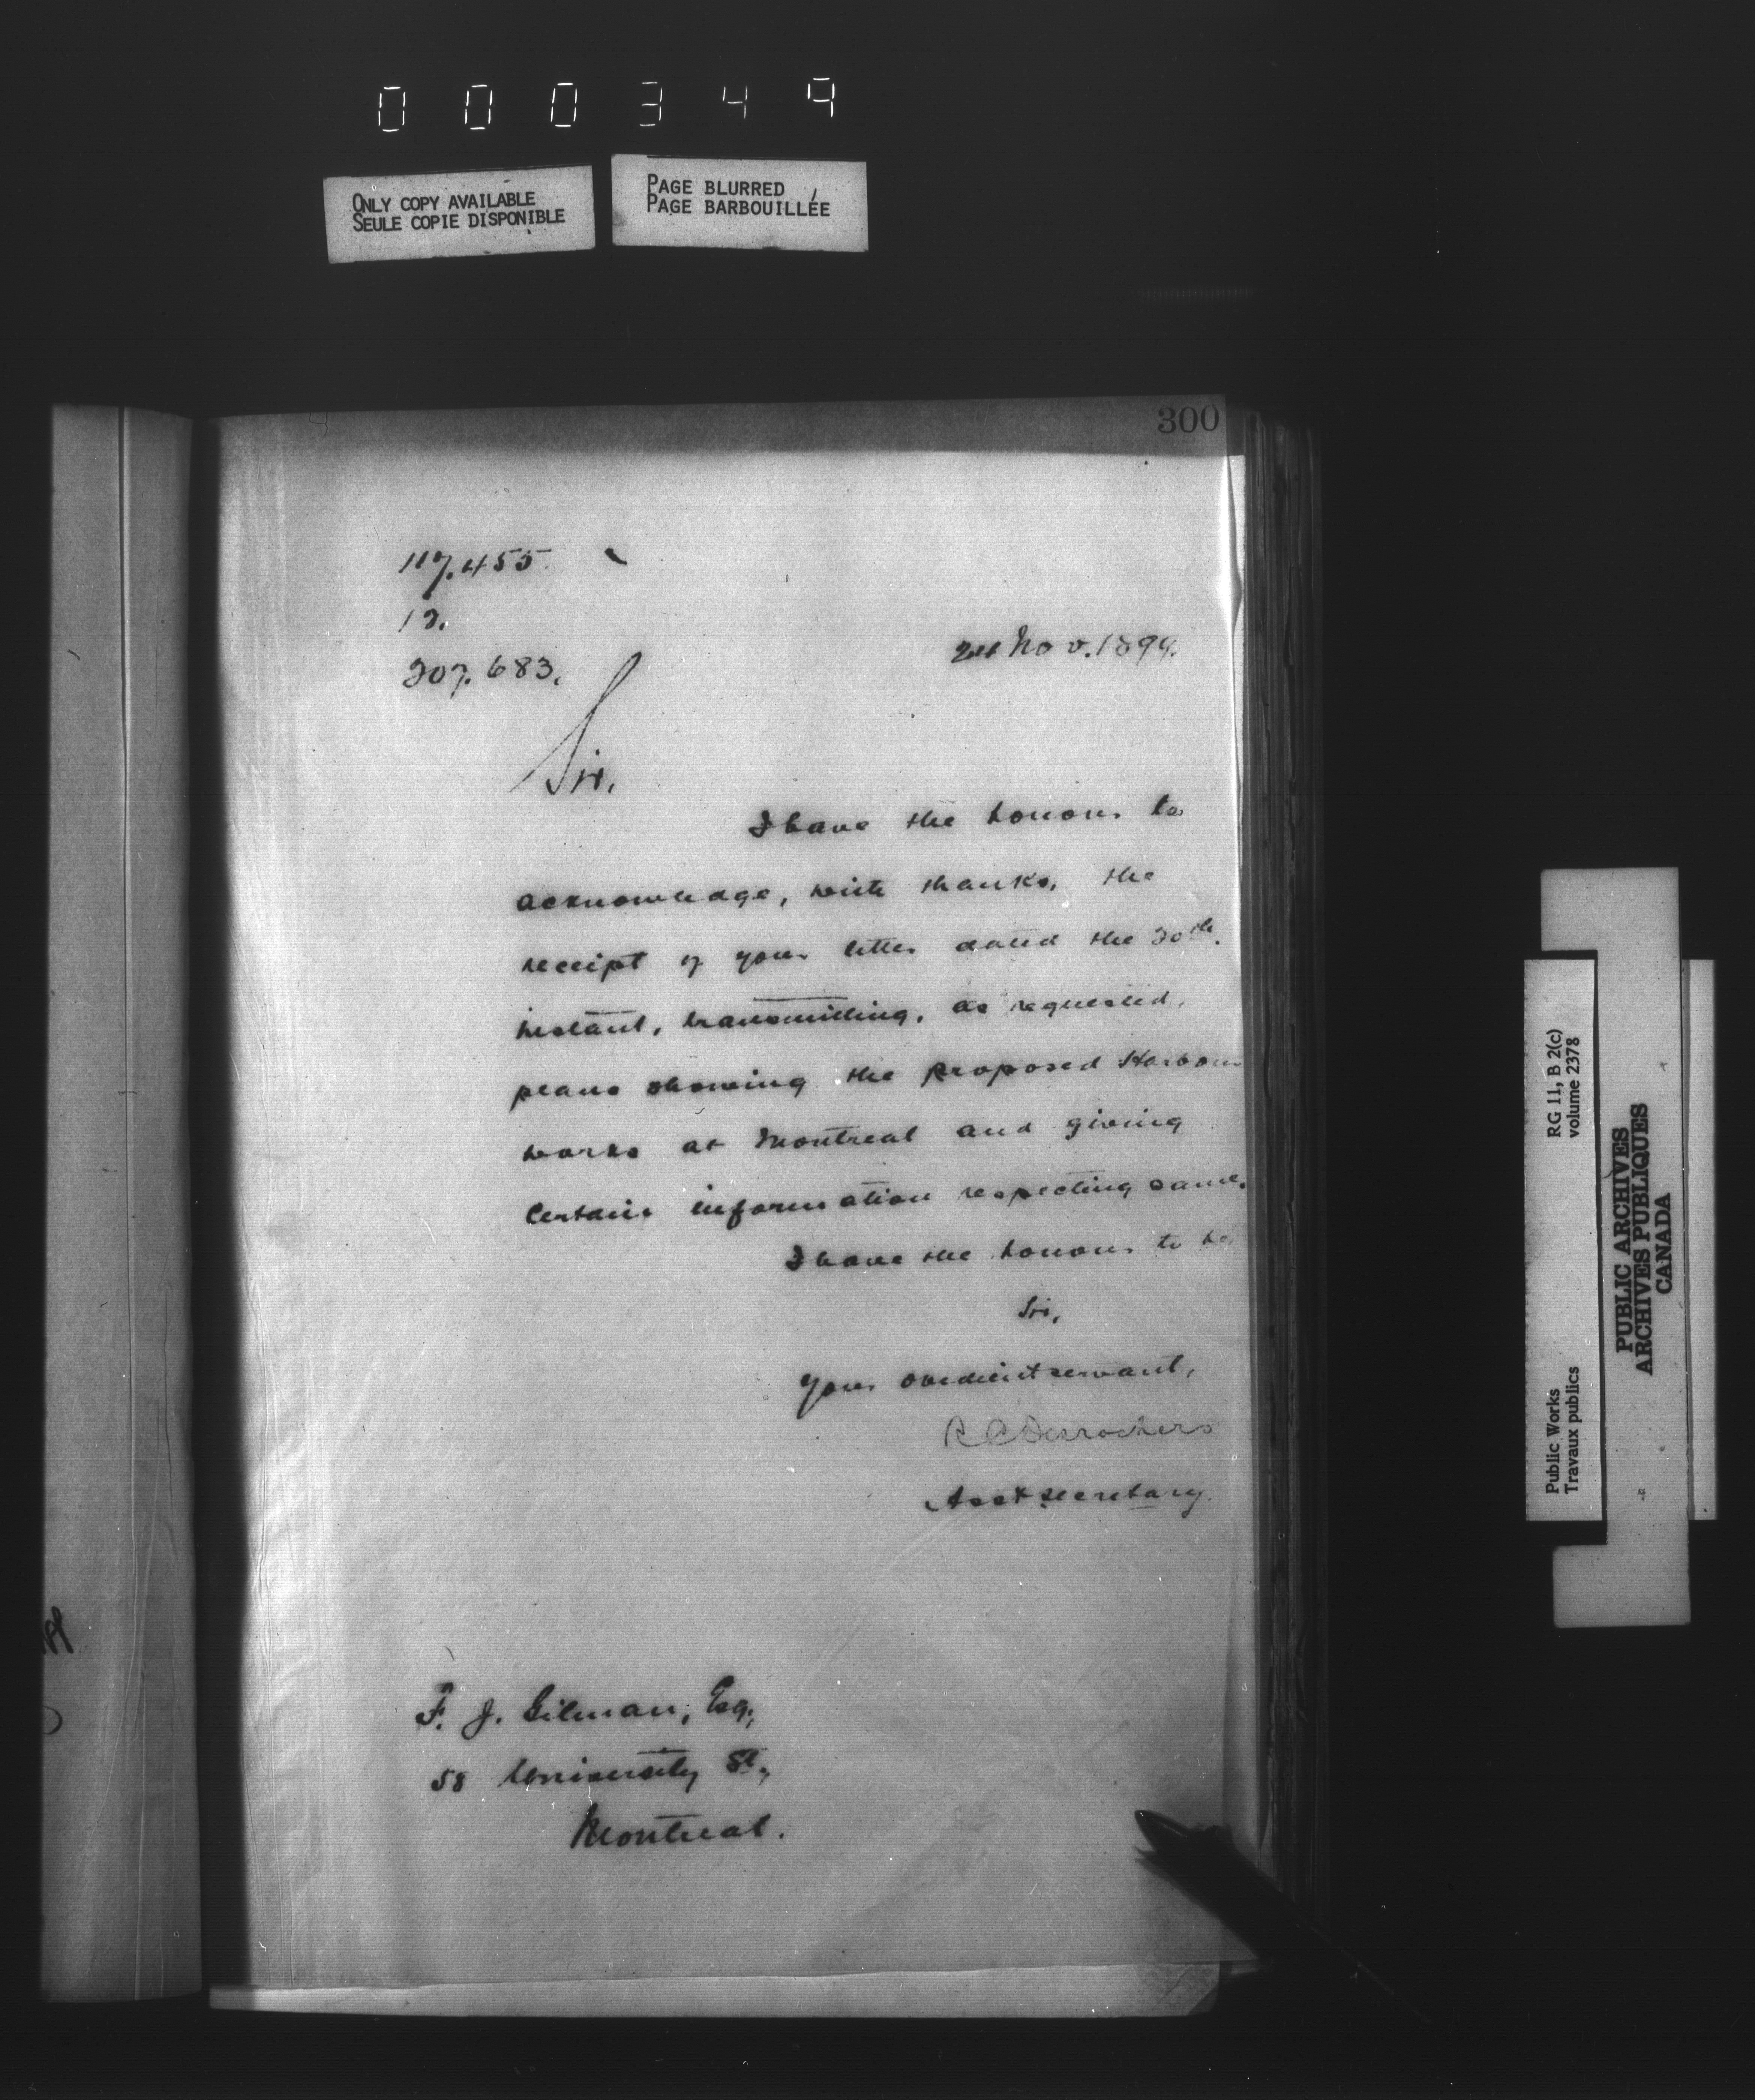 000349
ONLY COPY AVAILABLE
SEULE COPIE DISPONIBLE
PAGE BLURRED
PAGE BARBOUILLÉE
300
117.455
12.
207.683.
24 Nov. 1899.
Sir,
I have the honour to
acknowledge, with thanks, the
receipt of your letter dated the 20th.
instant, transmitting, as requested,
plans showing the proposed Harbour
works at Montreal and giving
certain information respecting same.
I have the honour to be,
Sir,
Your obedient servant,
R C Desrochers
Asst Secretary.
F. J. Gilman, Esq.,
58 University St.,
Montreal.
RG 11, B 2(c)
volume 2378
Public Works
Travaux publics
PUBLIC ARCHIVES
ARCHIVES PUBLIQUES
CANADA